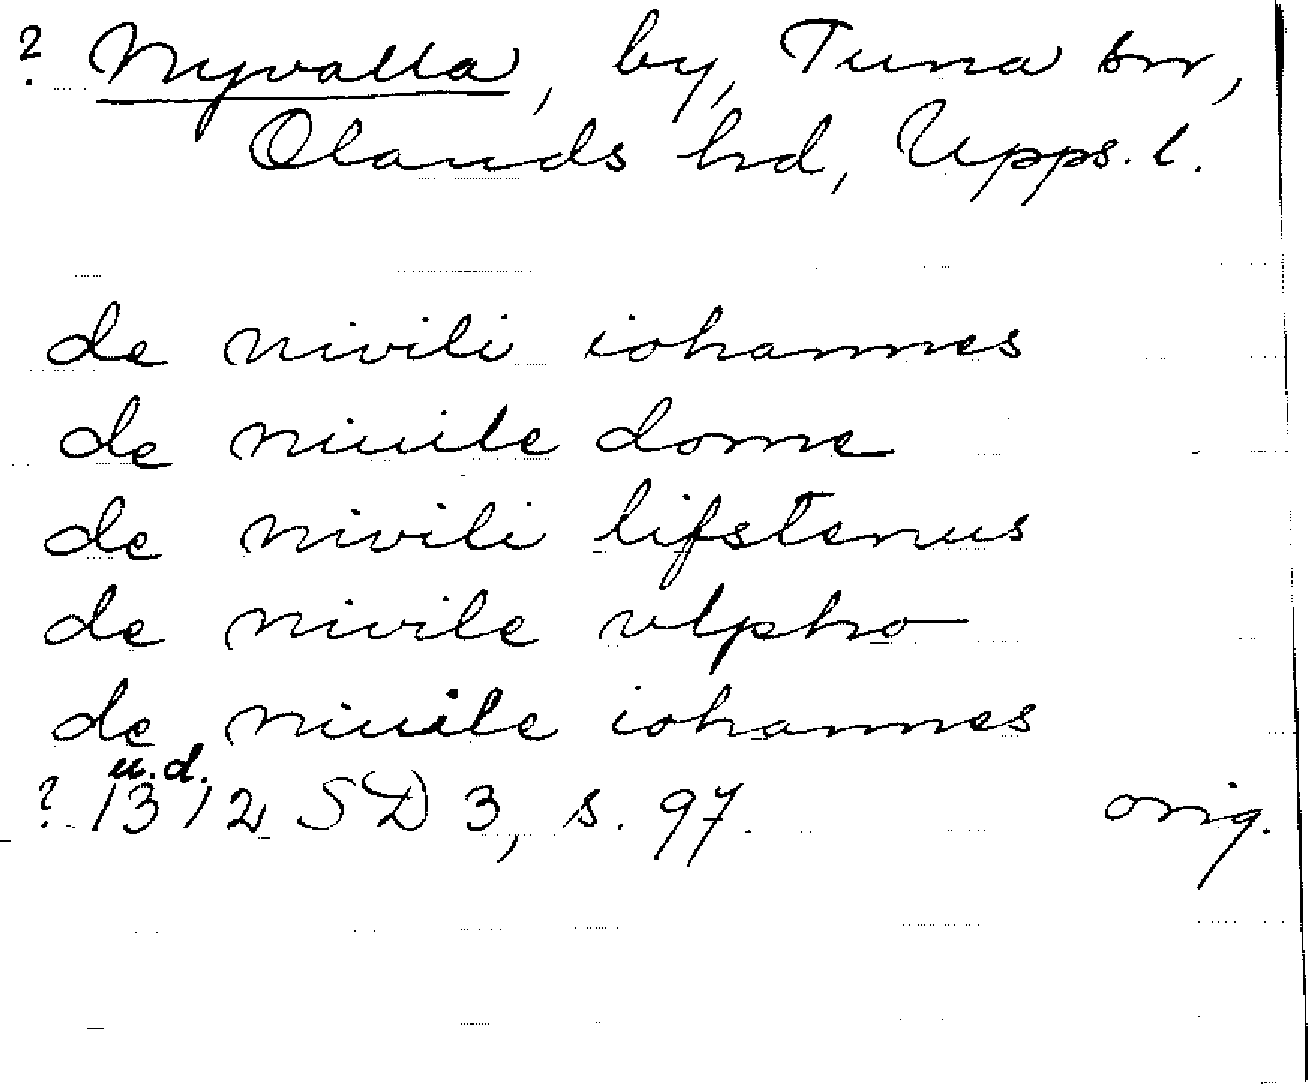 ? Nyvalla, by, Tuna sn,
Olands hd, Upps. l.
de nivili iohannes
de niuile dome
de nivili lifstenus
de nivile vlpho
de niuile iohannes
u.d.
? 1312 SD 3, s. 97. orig.